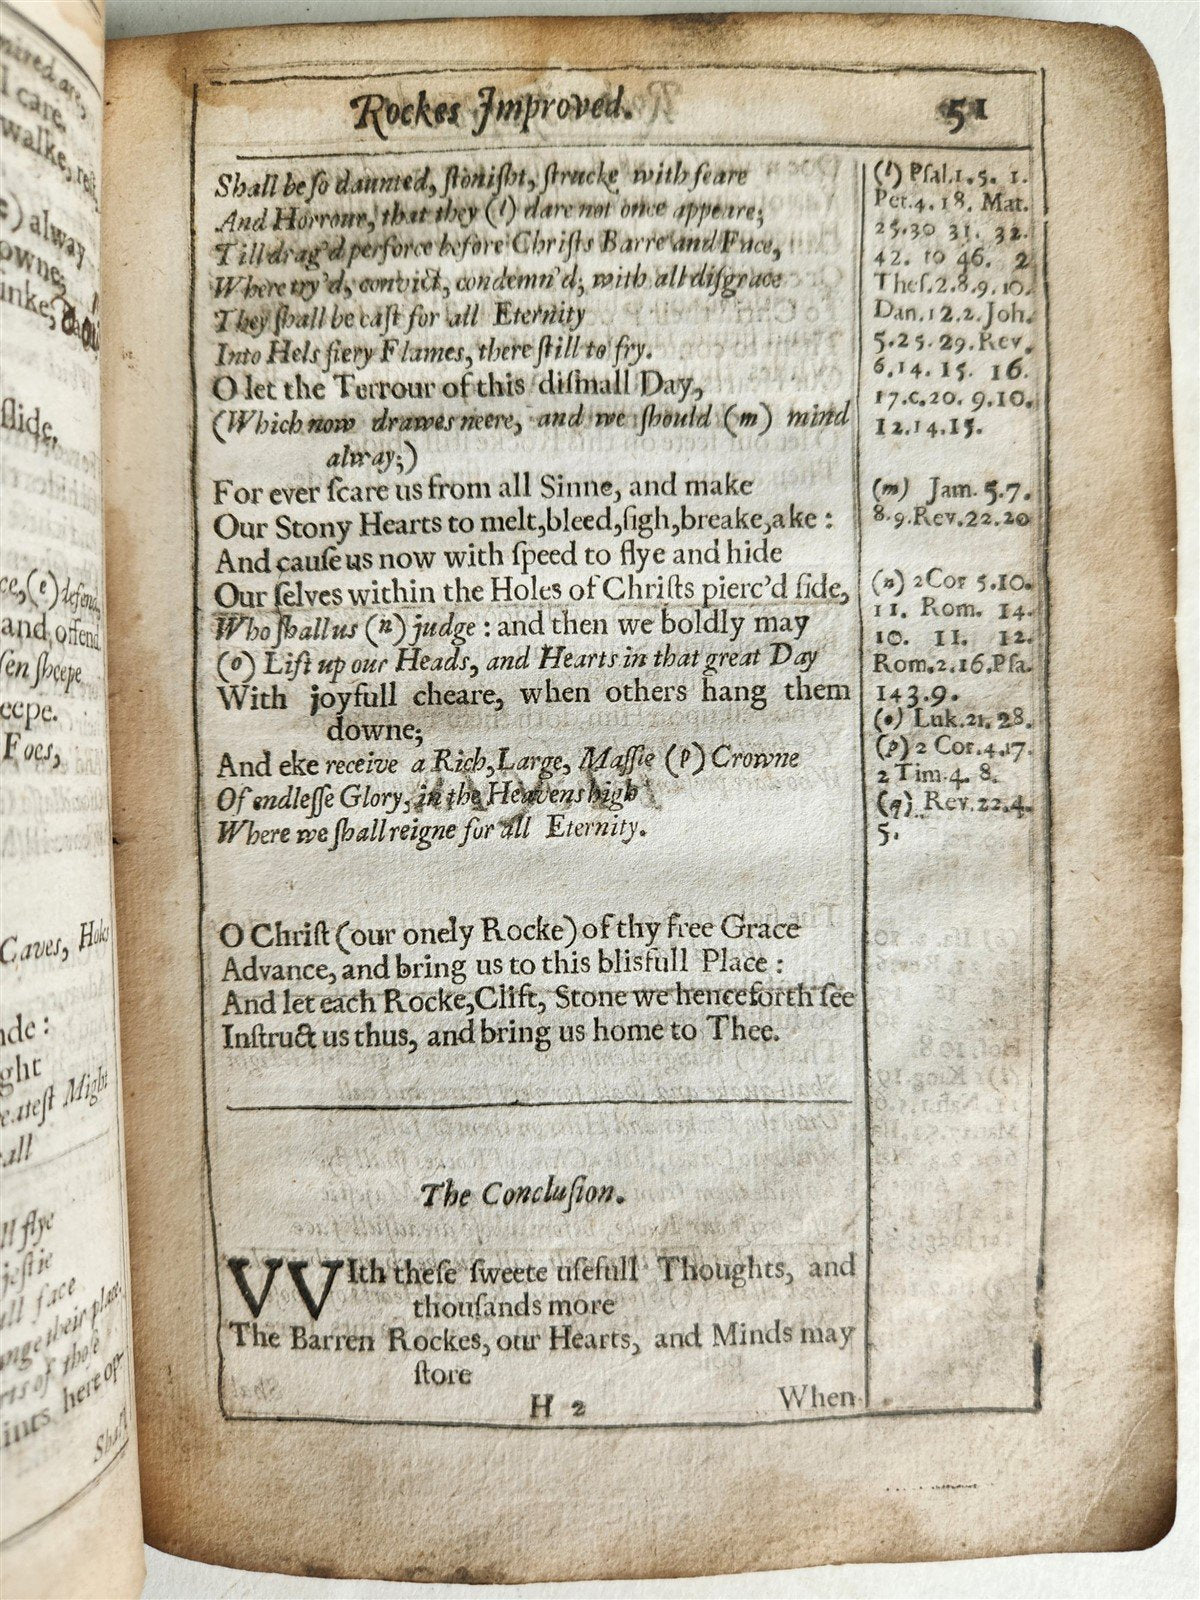 Rockes Improved. 51
Shall be ſo daunted, ſtoniſht, ſtrucke with feare
And Horrour, that they (l) dare not once appeare;
Till drag'd perforce before Chriſts Barre and Face,
Where try'd, convict, condemn'd; with all diſgrace
They ſhall be caſt for all Eternity
Into Hels fiery Flames, there ſtill to fry.
O let the Terrour of this diſmall Day,
(Which now drawes neere, and we ſhould (m) mind
alway;)
For ever ſcare us from all Sinne, and make
Our Stony Hearts to melt,bleed,ſigh,breake,ake :
And cauſe us now with ſpeed to flye and hide
Our ſelves within the Holes of Chriſts pierc'd ſide,
Who ſhall us (n) judge : and then we boldly may
(o) Lift up our Heads, and Hearts in that great Day
With joyfull cheare, when others hang them
downe;
And eke receive a Rich, Large, Maſſie (p) Crowne
Of endleſſe Glory, in the Heavens high
Where we ſhall reigne for all Eternity.
O Chriſt (our onely Rocke) of thy free Grace
Advance, and bring us to this blisfull Place :
And let each Rocke,Clift, Stone we henceforth ſee
Inſtruct us thus, and bring us home to Thee.
The Concluſion.
VVIth theſe ſweete uſefull Thoughts, and
thouſands more
The Barren Rockes, our Hearts, and Minds may
ſtore
H 2 When
(l) Pſal.1.5. 1.
Pet.4.18. Mat.
25.30 31. 32.
42. to 46. 2
Theſ.2.8.9.10.
Dan.12.2. Joh.
5.25.29.Rev.
6.14. 15. 16.
17.c.20. 9.10.
12.14.15.
(m) Jam. 5.7.
8.9.Rev.22.20
(n) 2Cor 5.10.
11. Rom. 14.
10. 11. 12.
Rom.2.16.Pſa.
143.9.
(o) Luk.21.28.
(p) 2 Cor.4.17.
2 Tim.4. 8.
(q) Rev.22.4.
5.
I care.
) alway
owne;
ſlide,
and offend.
ſen ſheepe
eepe.
Foes,
Caves, Holes
nde :
ght
eateſt Might
all
ll flye
jeſtie
ull face
nge their place,
rts of thoſe
ints here op-
Shall